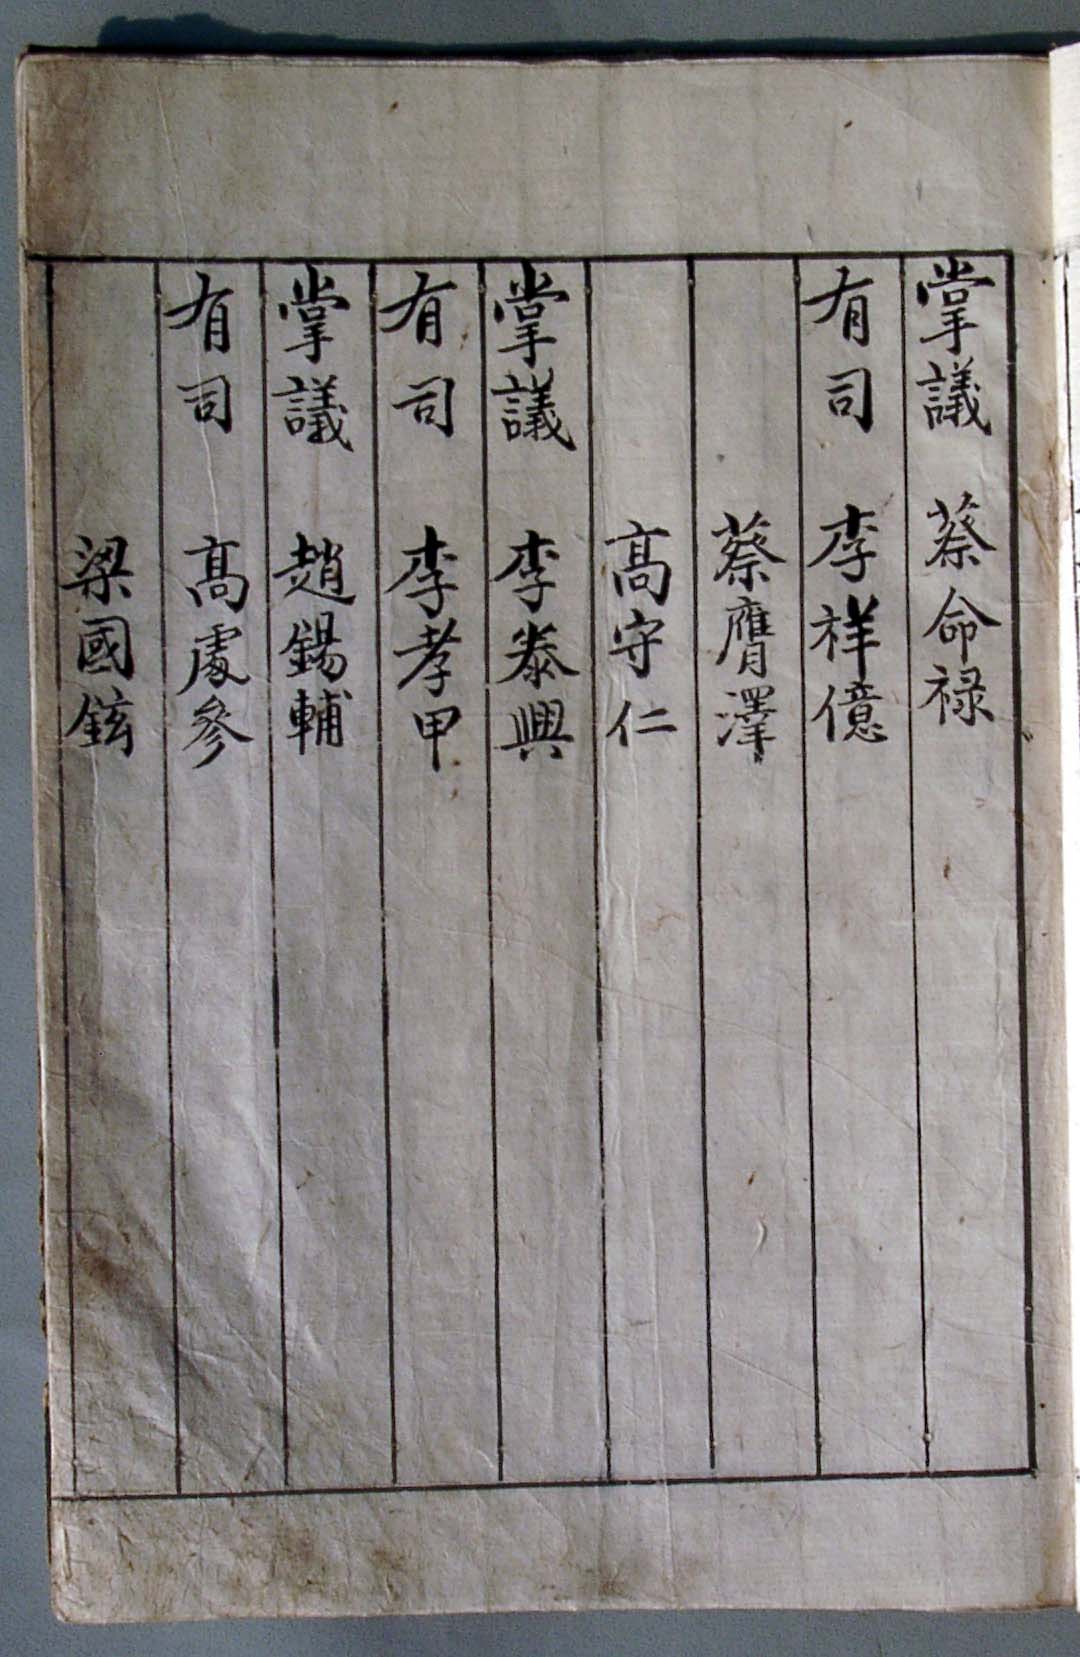 掌議 蔡命禄
有司 李祥億
蔡膺澤
高守仁
掌議 李泰興
有司 李孝甲
掌議 趙錫輔
有司 高處參
梁國鉉